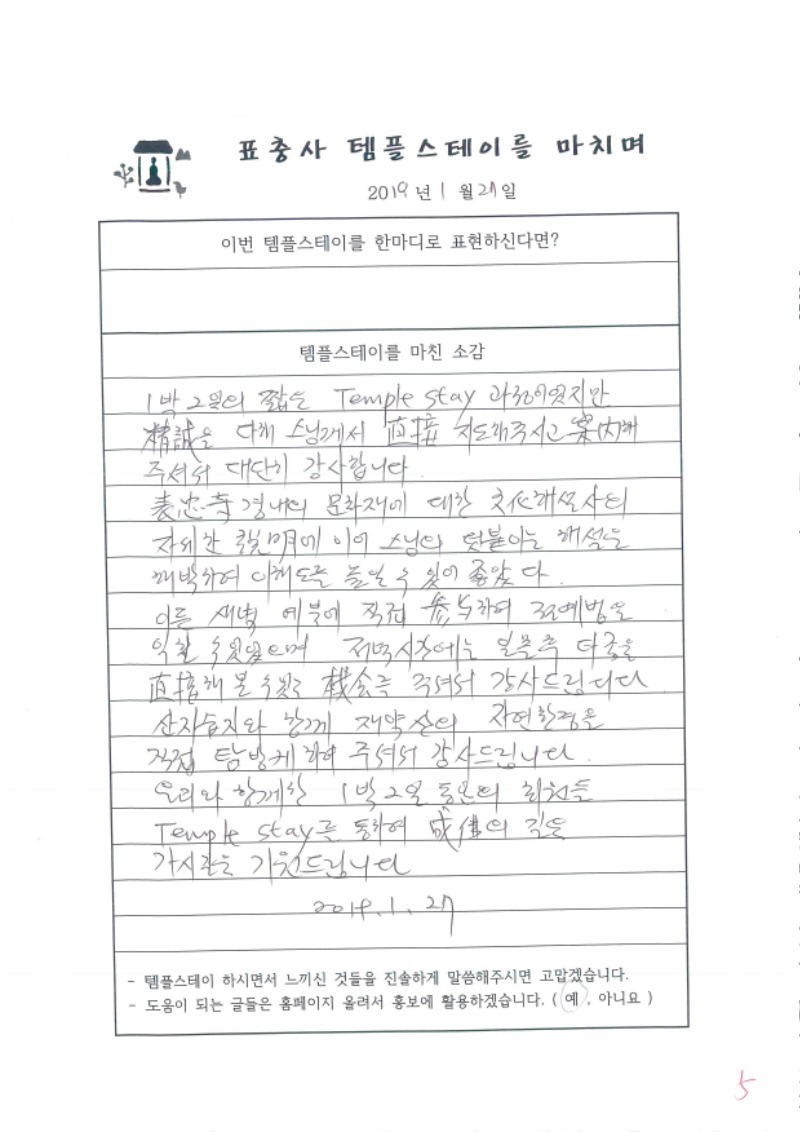 표충사 템플스테이를 마치며
2019년 1월 27일
이번 템플스테이를 한마디로 표현하신다면?
템플스테이를 마친 소감
1박 2일의 짧은 Temple stay 과정이었지만
精誠을 다해 스님께서 直接 지도해주시고 案內해
주셔서 대단히 감사합니다.
表忠寺 경내의 문화재에 대한 文化해설사의
자세한 說明에 이어 스님의 덧붙이는 해설을
하여 이해도를 높일 수 있어 좋았다.
이른 새벽 예불에 직접 參与하여 예법을
익힐 수 있었으며 저녁시간에는 다음을
直接해 볼 수 있는 機会를 주셔서 감사드립니다
산자습지와 함께 재약산의 자연환경을
직접 탐방케 하여 주셔서 감사드립니다.
우리와 함께한 1박 2일 동안의 회원들
Temple stay를 통하여 成佛의 길을
가시기를 기원드립니다
2019. 1. 27
- 템플스테이 하시면서 느끼신 것들을 진솔하게 말씀해주시면 고맙겠습니다.
- 도움이 되는 글들은 홈페이지 올려서 홍보에 활용하겠습니다. ( 예 , 아니요 )
5